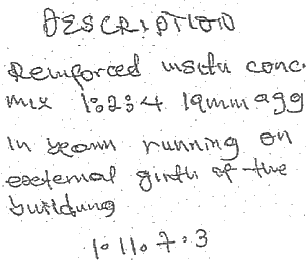 DESCRIPTION
Reinforced insitu conc.
mix 1:2:4 19mm agg
in beam running on
external girth of the
building
1.11.7.3